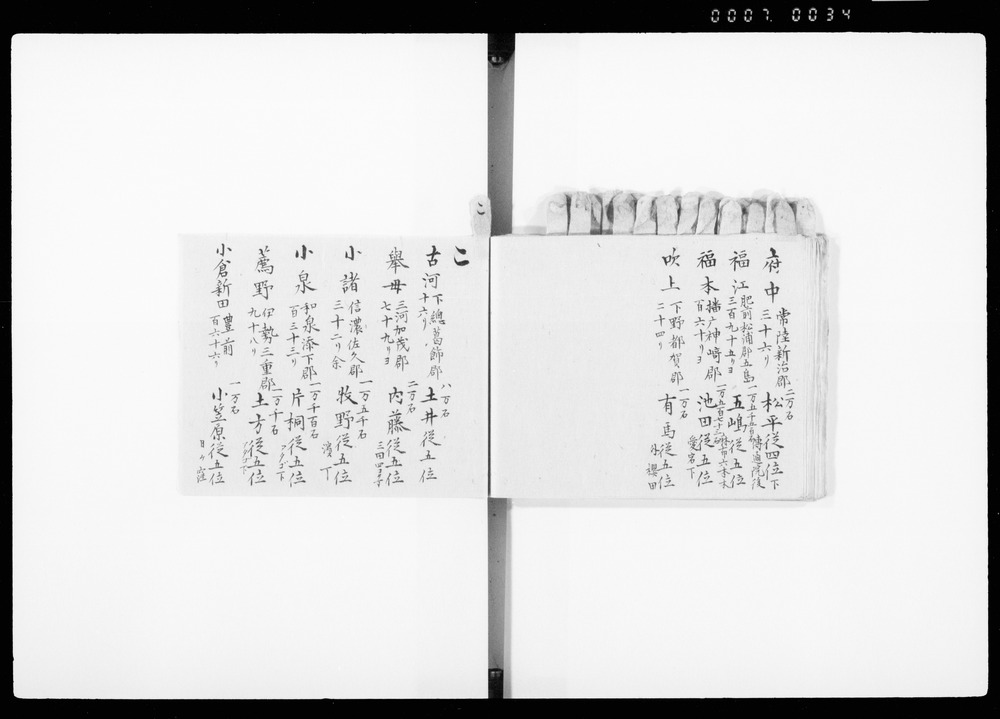 0007. 0034
府中 常陸新治郡 三十六リ 二万石 松平従四位下 傳通院後
福江 肥前松浦郡五島 三百九十五リヨ 五嶋従五位
福本 播广神崎郡 百六十リヨ 池田従五位 愛宕下
吹上 下野都賀郡 二十四リ 一万石 有馬従五位 外櫻田
こ
こ
古河 下總葛飾郡 十六リ 八万石 土井従五位
擧母 三河加茂郡 七十九リヨ 二万石 内藤従五位
小諸 信濃佐久郡 三十二リ余 一万五千石 牧野従五位 濱丁
小泉 和泉添下郡 百三十三リ 一万千百石 片桐従五位 アタゴ下
薦野 伊勢三重郡 九十八リ 一万千石 土方従五位
小倉新田 豊前 百六十六リ 一万石 小笠原従五位